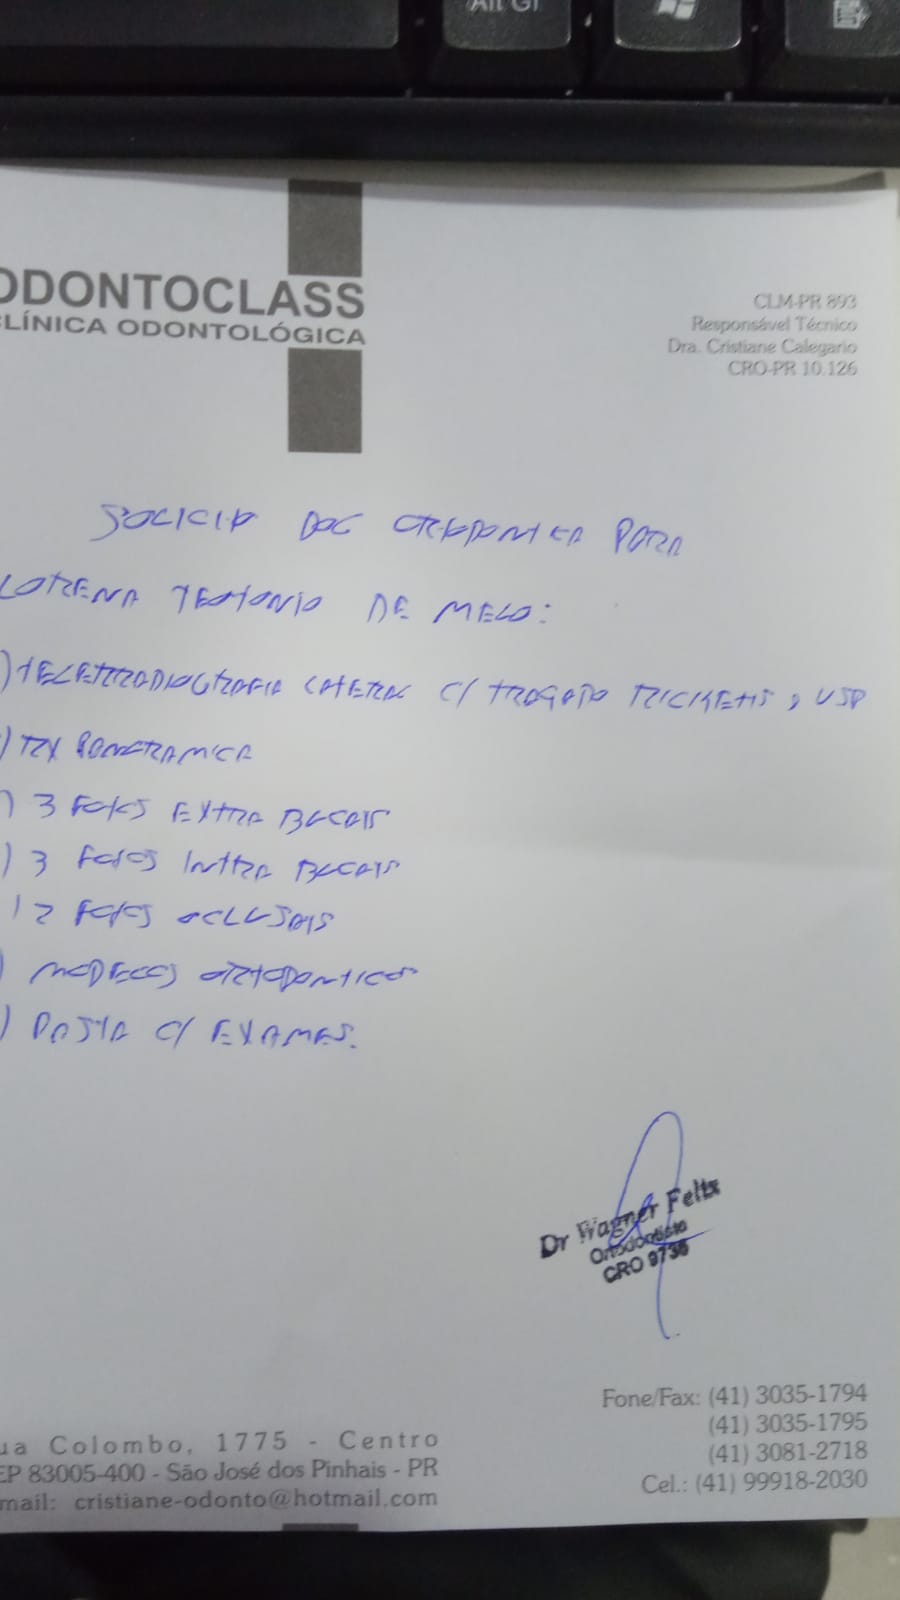 Alt Gr
ODONTOCLASS
CLÍNICA ODONTOLÓGICA
CLM-PR 893
Responsável Técnico
Dra. Cristiane Calegario
CRO-PR 10.126
SOLICITO DOC ORTODONTICA PARA
LORENA TEOTONIO DE MELO:
) TELERRADIOGRAFIA LATERAL C/ TRAÇADO RICKETTS, USP
) RX PANORAMICA
) 3 FOTOS EXTRA BUCAIS
) 3 FOTOS INTRA BUCAIS
) 2 FOTOS OCLUSAIS
) MODELOS ORTODONTICOS
) PASTA C/ EXAMES.
Dr Wagner Felix
Ortodontista
CRO 9736
Fone/Fax: (41) 3035-1794
(41) 3035-1795
(41) 3081-2718
Cel.: (41) 99918-2030
ua Colombo, 1775 - Centro
EP 83005-400 - São José dos Pinhais - PR
mail: cristiane-odonto@hotmail.com